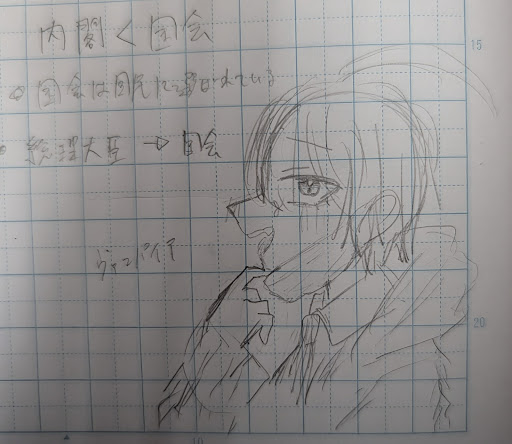 内閣 < 国会
国会は国民に選ばれている
総理大臣 → 国会
ヴァンパイア
15
20
10